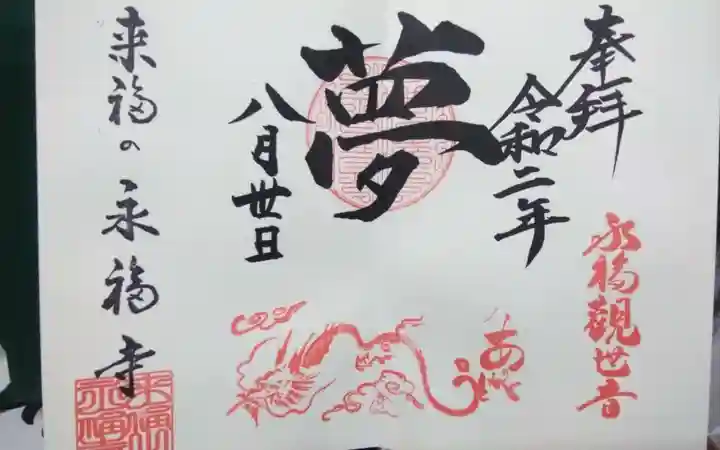 奉拝
永福觀世音
令和二年
夢
八月丗日
来福の永福寺
ありがとう